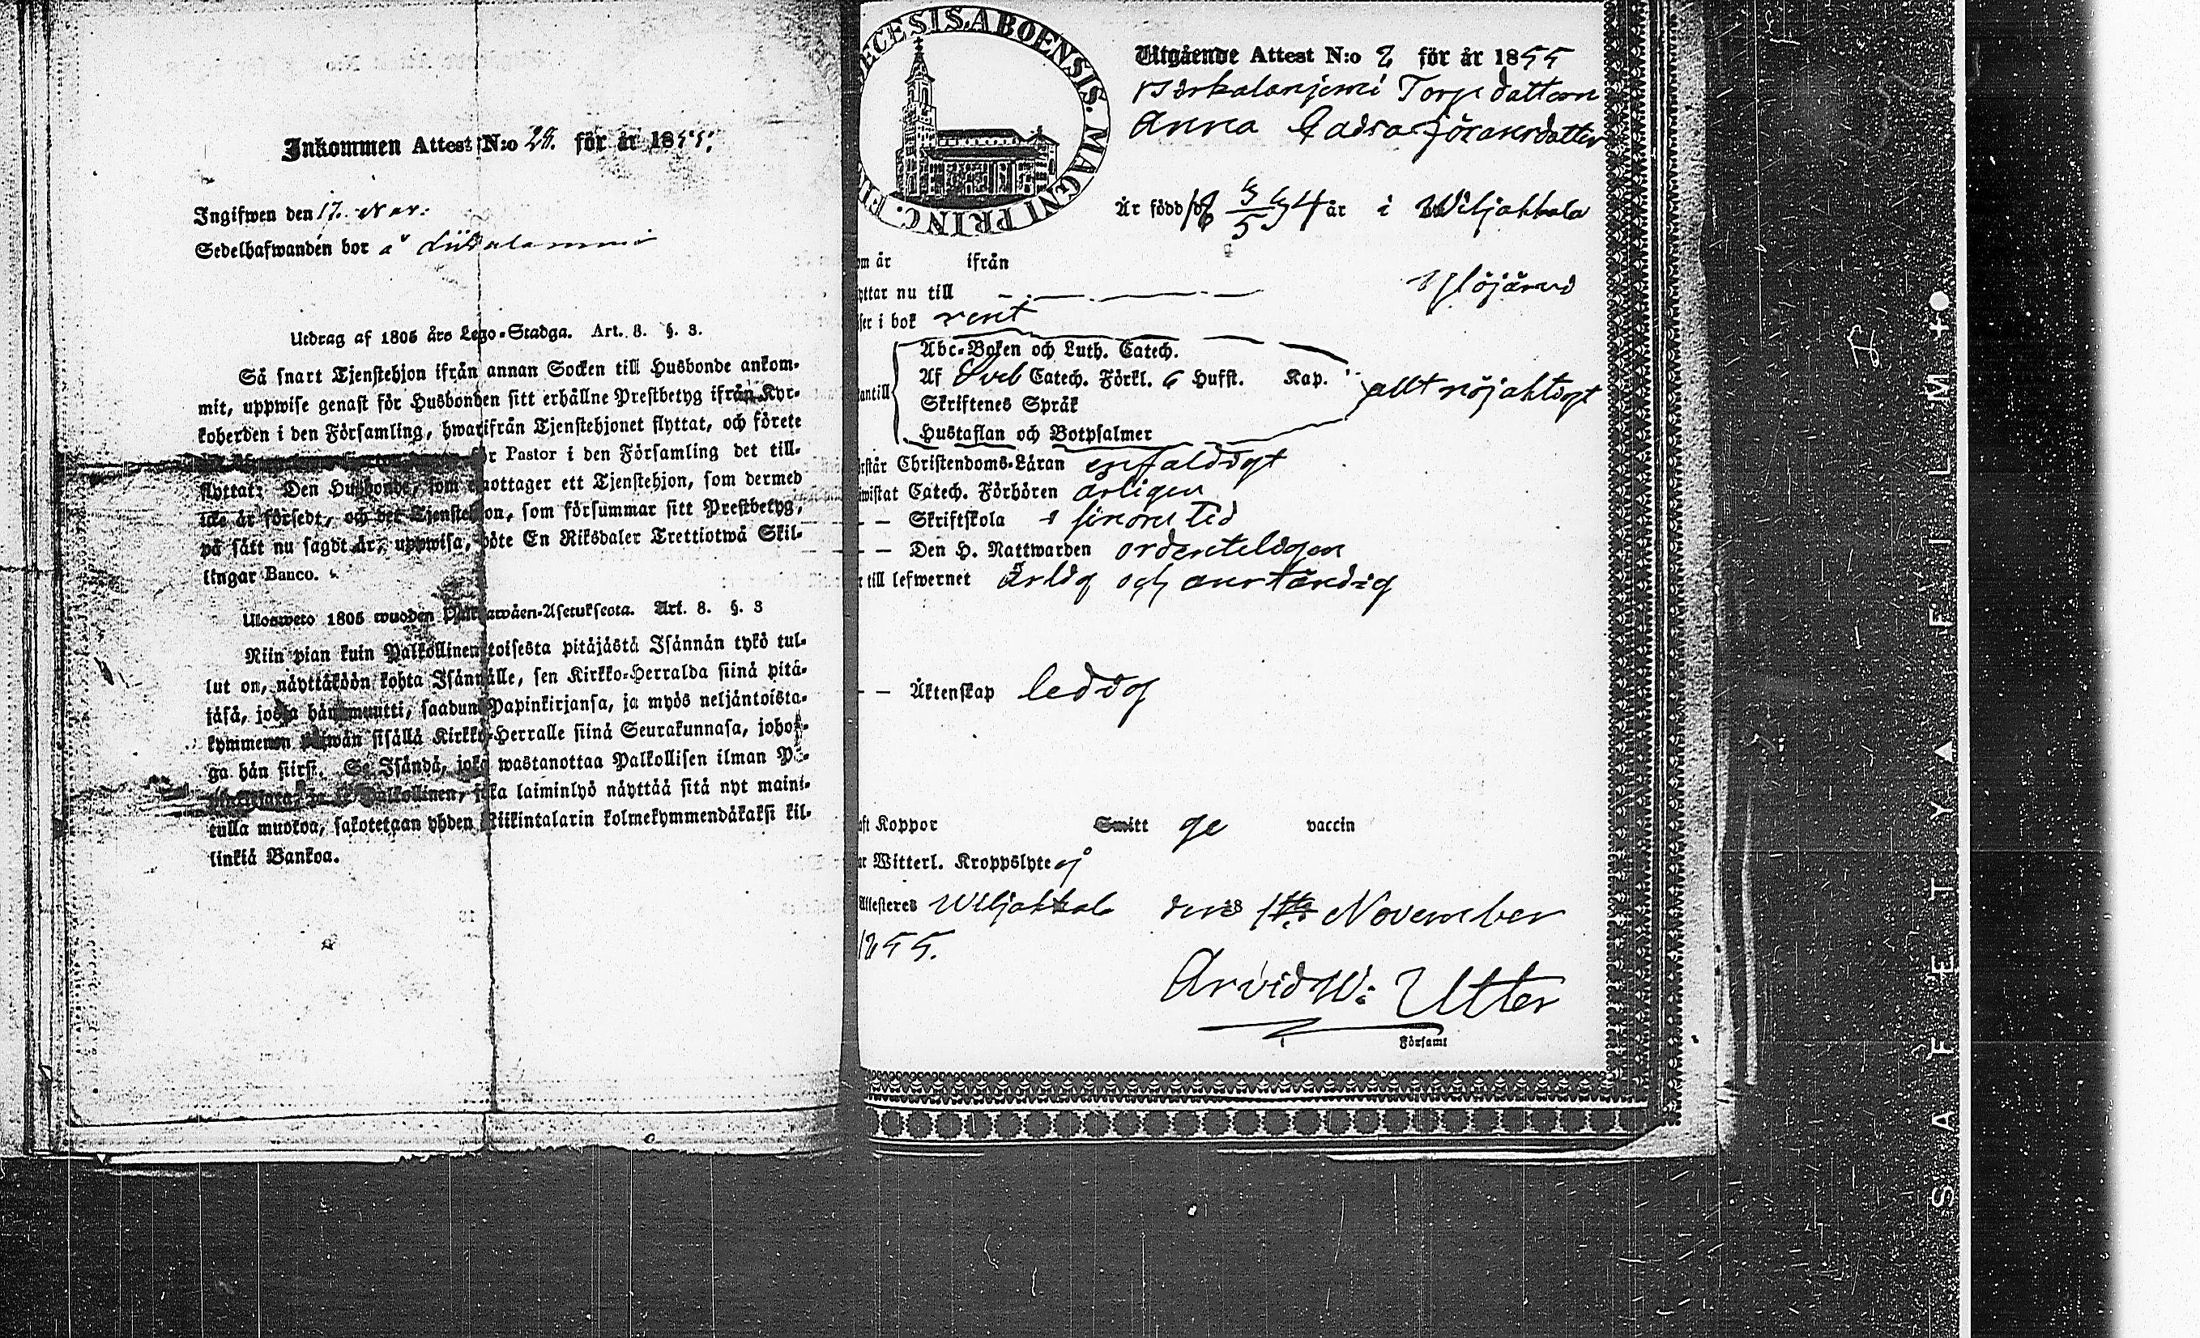 Inkommen Attest N:o 28. för år 1855.
Ingifwen den 17. Nov.
Sedelhafwanden bor å
Utdrag af 1805 års Lego-Stadga. Art. 8. §. 3.
Så snart Tjenstehjon ifrån annan Socken till Husbonde ankom-
mit, uppwise genast för Husbonden sitt erhållne Prestbetyg ifrån Kyr-
koherden i den Församling, hwarifrån Tjenstehjonet flyttat, och förete
för Pastor i den Församling det till-
flyttat; Den Husbonde, som emottager ett Tjenstehjon, som dermed
icke är försedt, och det Tjenstehjon, som försummar sitt Prestbetyg,
på sätt nu sagdt är, uppwisa, böte En Riksdaler Trettiotwå Skil-
lingar Banco.
Uloswето 1805 wuoden Palkkawäen-Asetuksesta. Art. 8. §. 3
Niin pian kuin Palkollinen toisesta pitäjästä Isännän tykö tul-
lut on, näyttäköön kohta Isännälle, sen Kirkko-Herralda siinä pitä-
jäsä, josta hän muutti, saadun Papinkirjansa, ja myös neljäntoista-
kymmenen päiwän sisällä Kirkko-Herralle siinä Seurakunnasa, johon-
ga hän siirsi. Se Isändä, joka wastanottaa Palkollisen ilman Pa-
pinkirjata, ja se Palkollinen, joka laiminlyö näyttää sitä nyt maini-
tulla muotoa, sakotetaan yhden Riikintalarin kolmekymmendäkaksi kil-
linkiä Bankoa.
ECESIS ABOENSIS. MAGNI PRINC. FI
Utgående Attest N:o 2 för år 1855
Torp dottern
Anna Caisa Jöransdotter
Är född d. år i Wiljakkala
om är ifrån
yttar nu till Ylöjärvi
ser i bok rent
Abc-Boken och Luth. Catech.
Af Sveb Catech. Förkl. 6 Hufst. Kap.
antill allt nöjaktigt
Skriftenes Språk
Hustaflan och Botpsalmer
rstår Christendoms-Läran enfaldigt
wistat Catech. Förhören årligen
– – Skriftskola i sinom tid
– – Den H. Nattwarden ordenteligen
r till lefwernet ärlig och anständig
– – Äktenskap ledig
ft Koppor Smitt ge vaccin
ar Witterl. Kroppslyte ej
Attesteres Wiljakkala den 18 November
1855.
Arvid W: Utter
Församl
SAFETY▲FILM